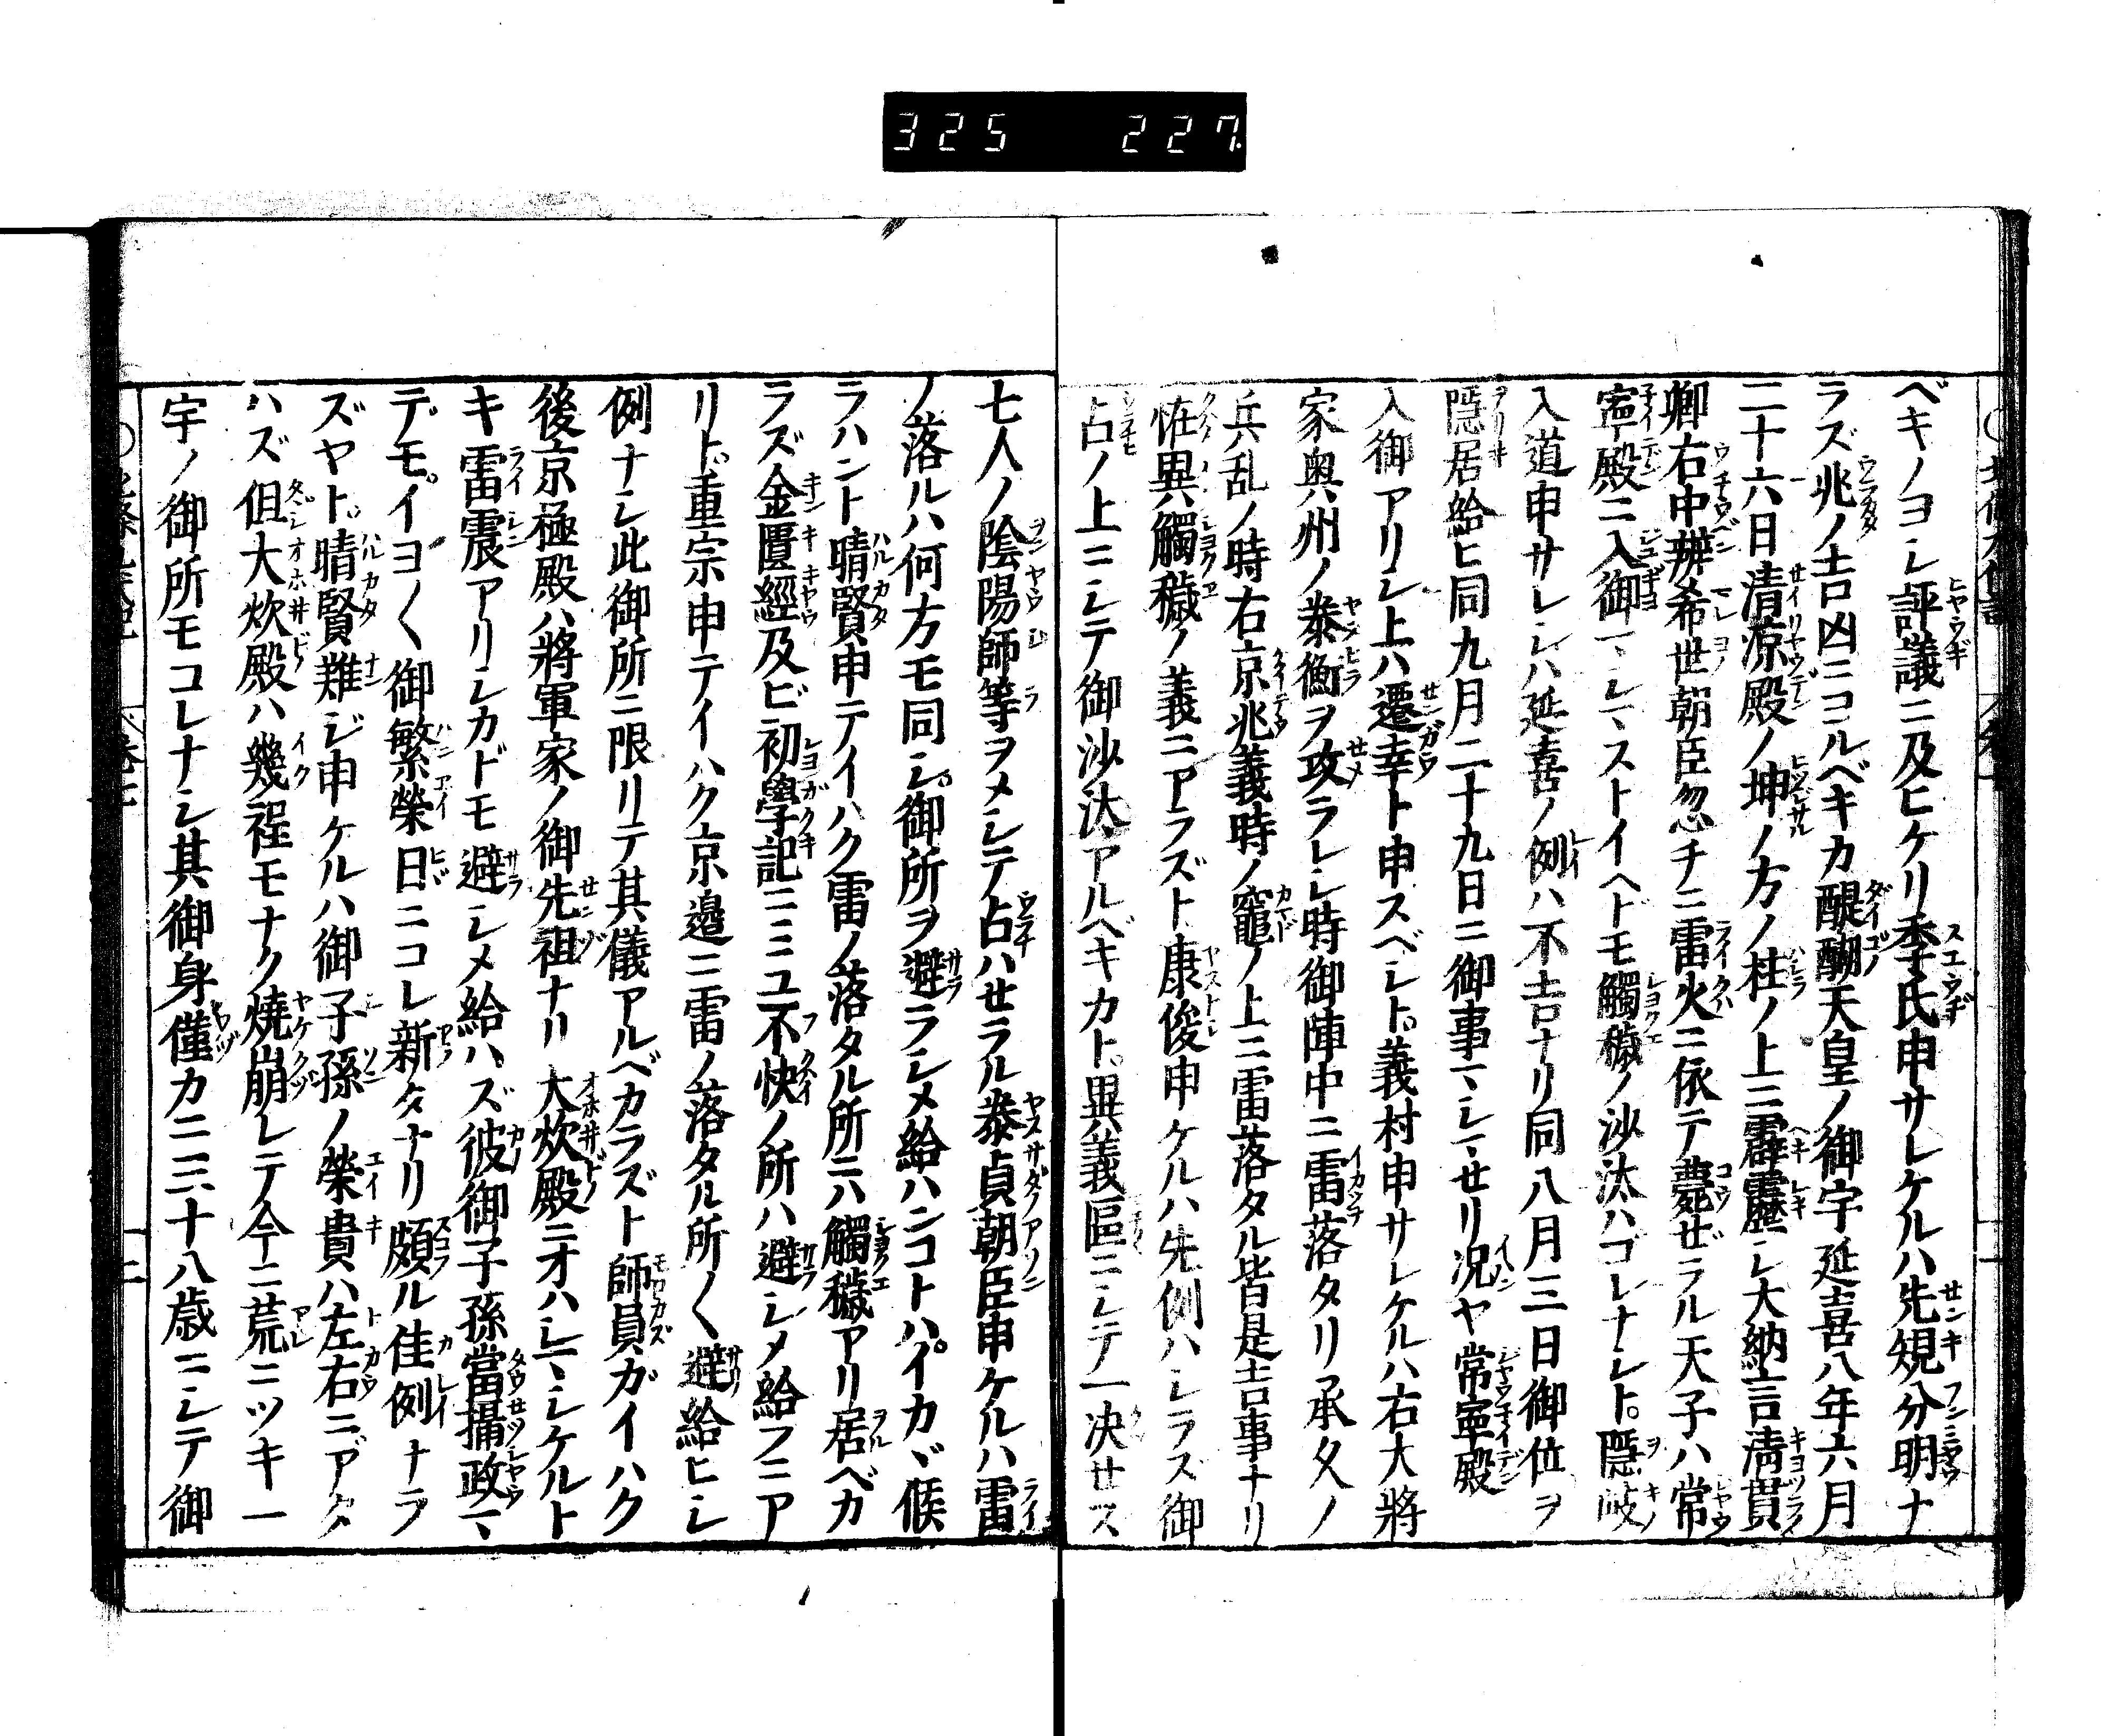 325 227
ベキノヨシ評議ニ及ヒケリ季氏申サレケルハ先規分明ナ
ラズ兆ノ吉凶ニコルベキカ醍醐天皇ノ御宇延喜八年六月
二十六日清凉殿ノ坤ノ方ノ柱ノ上ニ霹靂シ大納言淸貫
卿右中辨希世朝臣忽チニ雷火ニ依テ薨ゼラル天子ハ常
寧殿ニ入御マシマストイヘドモ觸穢ノ沙汰ハコレナシト。隱岐
入道申サレシハ延喜ノ例ハ不吉ナリ同八月三日御位ヲ
隱居給ヒ同九月二十九日ニ御事マシマセリ况ヤ常寧殿
入御アリシ上ハ遷幸ト申スベシト。義村申サレケルハ右大將
家奥州ノ泰衡ヲ攻ラレシ時御陣中ニ雷落タリ承久ノ
兵乱ノ時右京兆義時ノ竈ノ上ニ雷落タル皆是吉事ナリ
恠異觸穢ノ義ニアラズト康俊申ケルハ先例ハシラズ御
占ノ上ニシテ御沙汰アルベキカト。異義區ニシテ一决せス
七人ノ陰陽師等ヲメシテ占ハせラル泰貞朝臣申ケルハ雷
ノ落ルハ何方モ同シ。御所ヲ避ラシメ給ハンコトハ。イカヾ候
ラハント晴賢申テイハク雷ノ落タル所ニハ觸穢アリ居ベカ
ラズ金匱經及ビ初學記ニミユ不快ノ所ハ避シメ給フニア
リト。重宗申テイハク京邉ニ雷ノ落タル所〱避給ヒシ
例ナシ此御所ニ限リテ其儀アルベカラズト師員ガイハク
後京極殿ハ將軍家ノ御先祖ナリ大炊殿ニオハシマシケルト
キ雷震アリシカドモ避シメ給ハズ彼御子孫當攝政マ
デモ。イヨ〱御繁榮日ニコレ新タナリ頗ル佳例ナラ
ズヤト。晴賢難ジ申ケルハ御子孫ノ榮貴ハ左右ニアタ
ハズ但大炊殿ハ幾程モナク焼崩レテ今ニ荒ニツキ一
宇ノ御所モコレナシ其御身僅カニ三十八歳ニシテ御